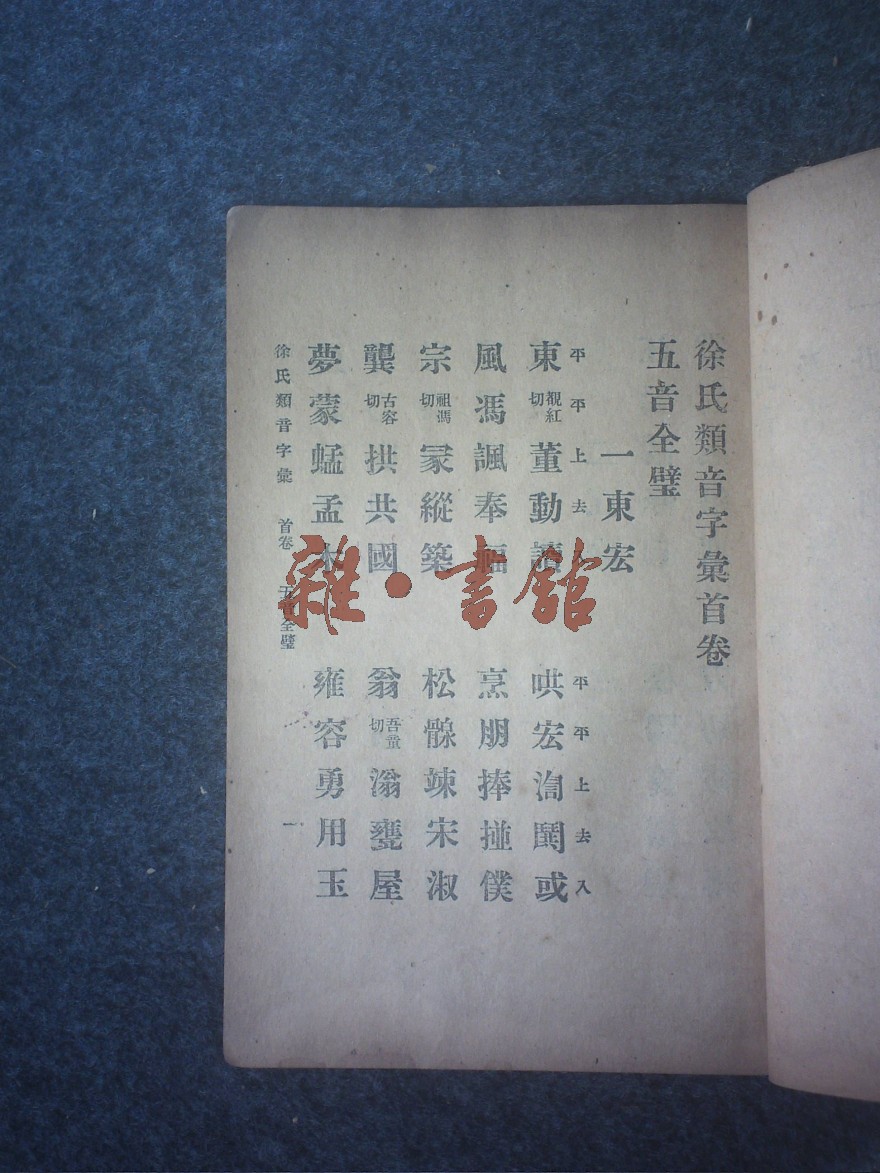 徐氏類音字彙首卷
五音全璧
一東宏
平平上去
東覩紅切董動讀
風馮諷奉幅
宗祖馮切冡縱築
龔古容切拱共國
夢蒙蜢孟木
平平上去入
哄宏渹鬨或
烹朋捧掽僕
松𩩺竦宋淑
翁吾蕫切滃甕屋
雍容勇用玉
徐氏類音字彙 首卷 五音全璧 一
雜·書館